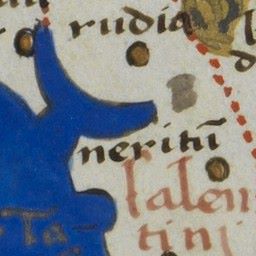 rudia
neritū
salen
tini
Ta-